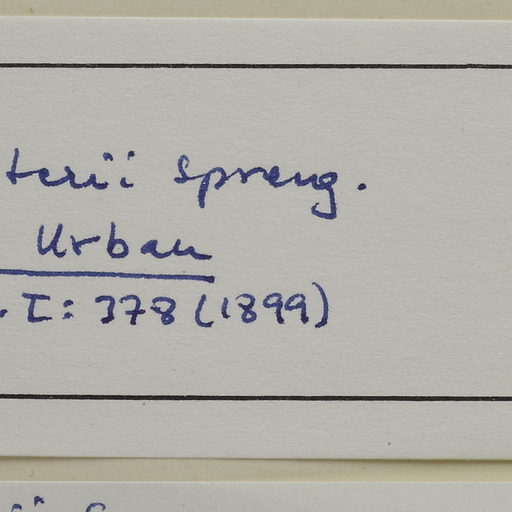 terii Spreng.
Urban
. I: 378 (1899)